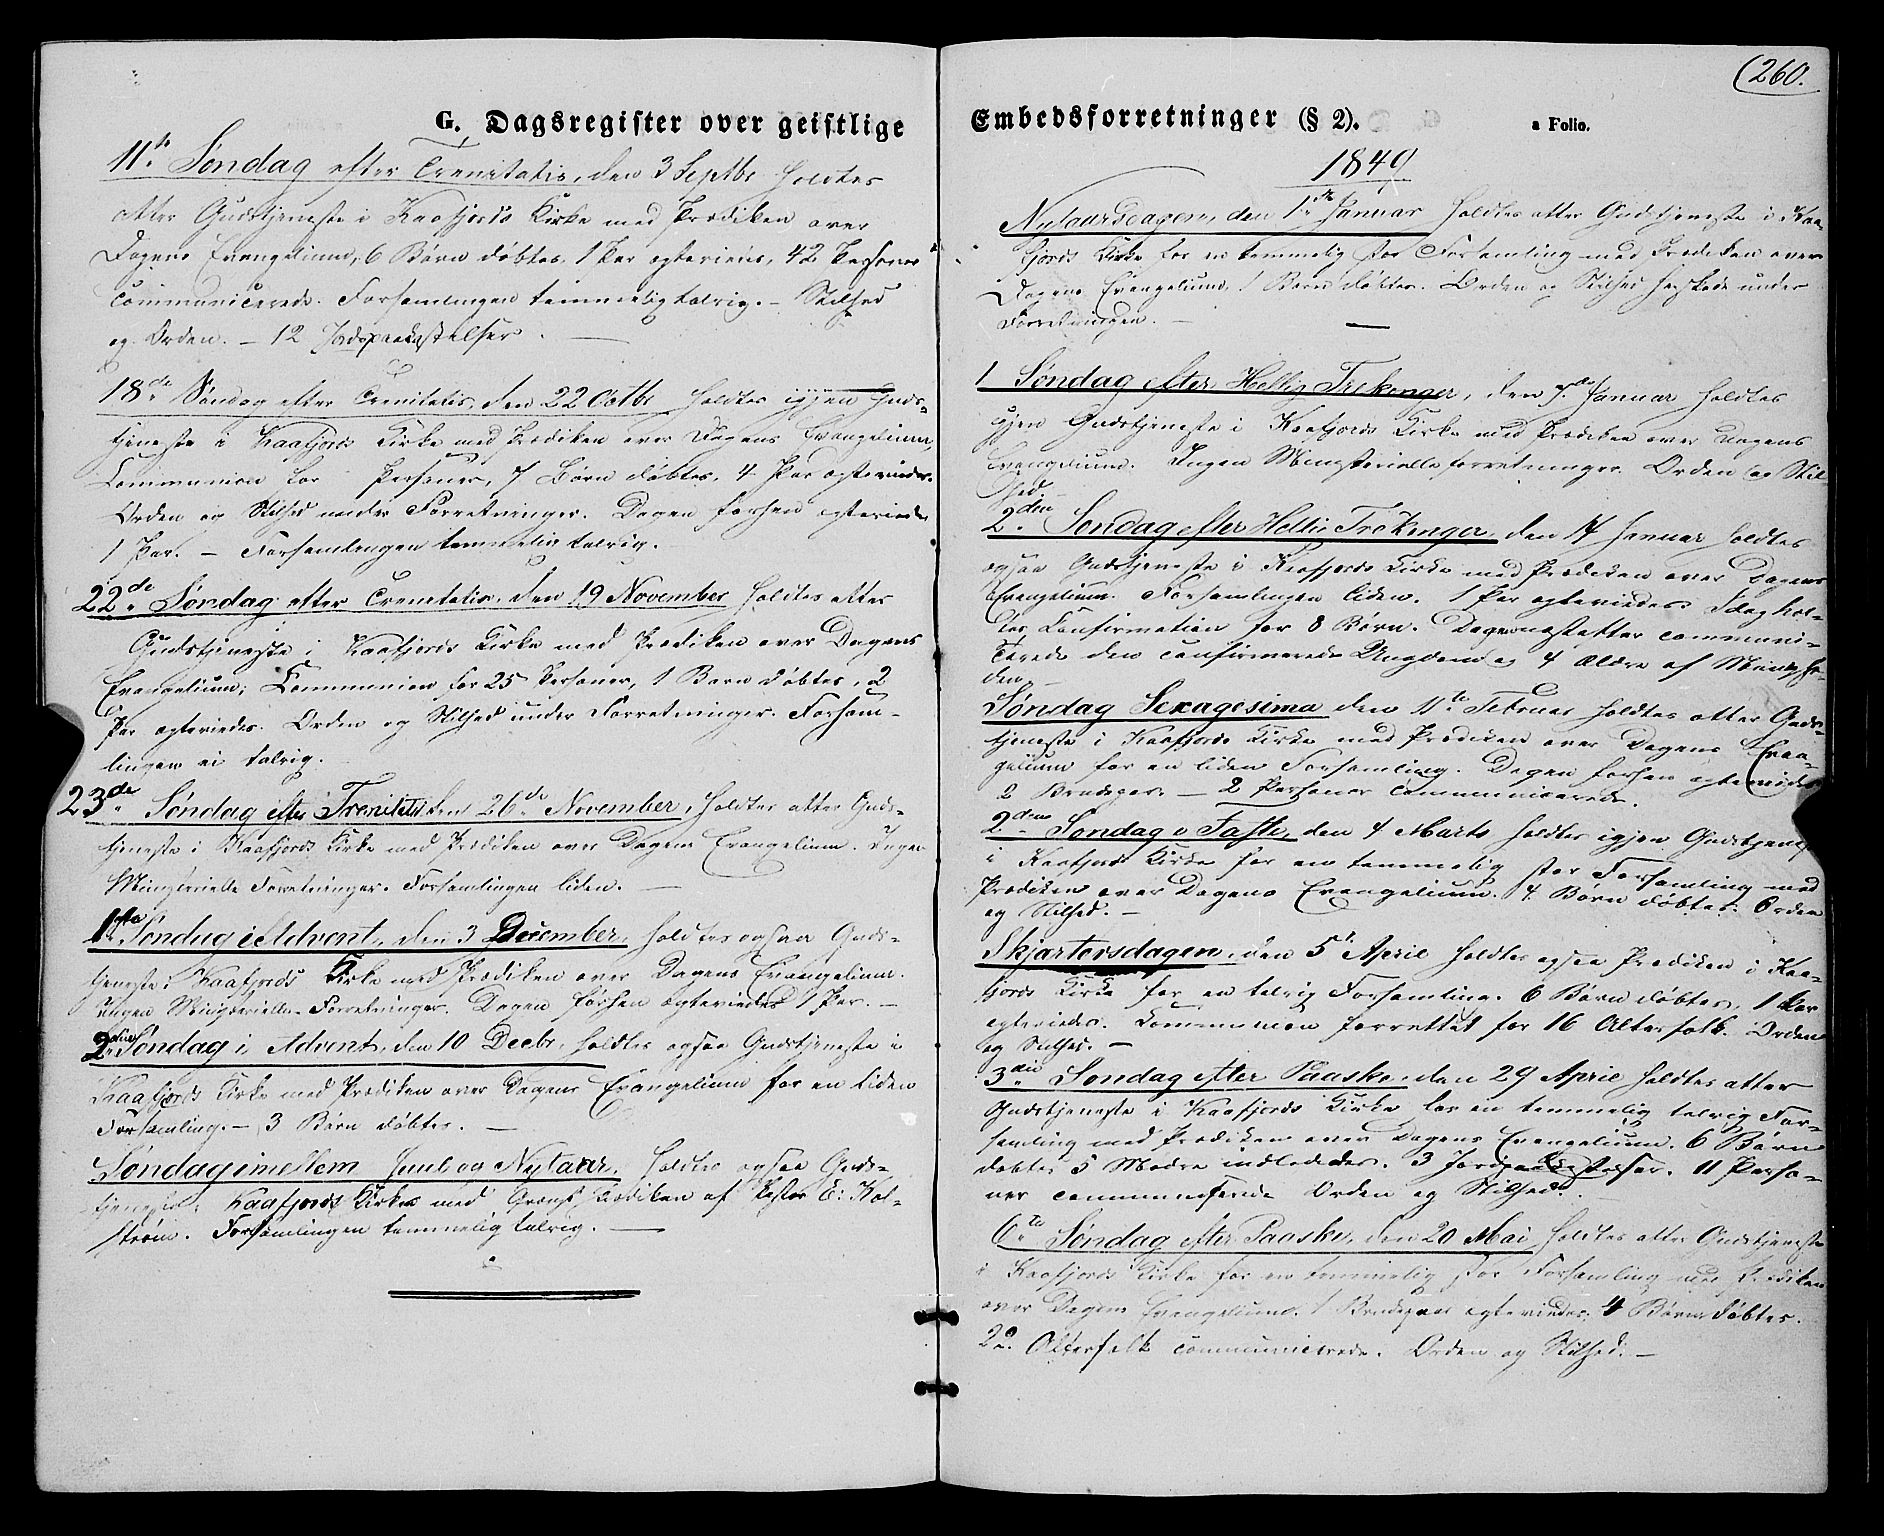 G. Dagsregister over geistlige
11te Søndag efter Trenitatis, den 3 Septbr holdtes
atter Gudstjeneste i Kaafjords Kirke med Prædiken over
Dagens Evangelium, 6 Børn døbtes, 1 Par egteviedes, 42 Personer
communicerede. Forsamlingen temmelig talrig. – Stilhed
og Orden. – 12 Jordspaakastelser. –
18de Søndag efter Trenitatis, den 22 Octbr holdtes igjen Guds-
tjeneste i Kaafjords Kirke med Prædiken over Dagens Evangelium,
Communion for Personer, 7 Børn døbtes, 4 Par egteviedes.
Orden og Stilhed under Forretninger. Dagen forhen egteviedes
1 Par. – Forsamlingen temmelig talrig.
22de Søndag efter Trenitatis, den 19 November holdtes atter
Gudstjeneste i Kaafjords Kirke med Prædiken over Dagens
Evangelium; Communion for 25 Personer, 1 Barn døbtes, 2
Par egteviedes. Orden og Stilhed under Forretninger. Forsam-
lingen ei talrig.
23de Søndag efter Trenitatis den 26de November, holdtes atter Guds-
tjeneste i Kaafjords Kirke med Prædiken over Dagens Evangelium. Ingen
Ministerielle Forretninger. Forsamlingen liden. –
1ste Søndag i Advent, den 3 December, holdtes ogsaa Guds-
tjeneste i Kaafjords Kirke med Prædiken over Dagens Evangelium.
Ingen Ministerielle Forretninger. Dagen forhen egteviedes 1 Par. –
2den Søndag i Advent, den 10 Decbr. holdtes ogsaa Gudstjeneste i
Kaafjords Kirke med Prædiken over Dagens Evangelium for en liden
Forsamling. – 3 Børn døbtes. –
Søndag imellem Juul og Nytaar, holdtes ogsaa Guds-
tjeneste i Kaafjords Kirke med Prædiken af Pastor E: Hol-
strøm. Forsamlingen temmelig talrig. –
(260.
Embedsforretninger (§ 2).
a Folio.
1849
Nytaarsdagen, den 1ste Januar holdtes atter Gudstjeneste i Kaa-
fjords Kirke for en temmelig stor Forsamling med Prædiken over
Dagens Evangelium, 1 Barn døbtes. Orden og Stilhed herskede under
Forretningen. –
1 Søndag efter Hellig Trekonger, den 7de Januar holdtes
igjen Gudstjeneste i Kaafjords Kirke med Prædiken over Dagens
Evangelium. Ingen Ministerielle forretninger. Orden og Stil
hed. –
2den Søndag efter Hellig Trekonger, den 14 Januar holdtes
ogsaa Gudstjeneste i Kaafjords Kirke med Prædiken over Dagens
Evangelium. Forsamlingen liden. 1 Par egteviedes. Idag hol-
tes Confirmation for 8 Børn. Dagen næstefter communi-
cerede den confirmerede Ungdom og 4 Ældre af Menighe-
den. –
Søndag Sexagesima den 11te Februar holdtes atter Guds-
tjeneste i Kaafjords Kirke med Prædiken over Dagens Evan-
gelium for en liden Forsamling. Dagen forhen egteviedes
2 Brudepar. – 2 Personer communicerede.
2den Søndag i Faste, den 4 Marts holdtes igjen Gudstjeneste
i Kaafjords Kirke for en temmelig stor Forsamling med
Prædiken over Dagens Evangelium. 4 Børn døbtes. Orden
og Stilhed. –
Skjærtorsdagen, den 5t April holdtes ogsaa Prædiken i Kaa-
fjords Kirke for en talrig Forsamling. 6 Børn døbtes, 1 Par
egteviedes. Communion forrettet for 16 Alterfolk. Orden
og Stilhed. –
3die Søndag efter Paaske, den 29 April holdtes atter
Gudstjeneste i Kaafjords Kirke for en temmelig talrig For-
samling med Prædiken over Dagens Evangelium. 6 Børn
døbtes 5 Mødre indlededes. 3 Jordpaakastelser. 11 Perso-
ner communicerede Orden og Stilhed.
6te Søndag efter Paaske, den 20 Mai holdtes atter Gudstjeneste
i Kaafjords Kirke for en temmelig stor Forsamling med Prædiken
over Dagens Evangelium. 1 Brudepar egteviedes. 4 Børn døbtes.
22 Alterfolk communicerede. Orden og Stilhed. –